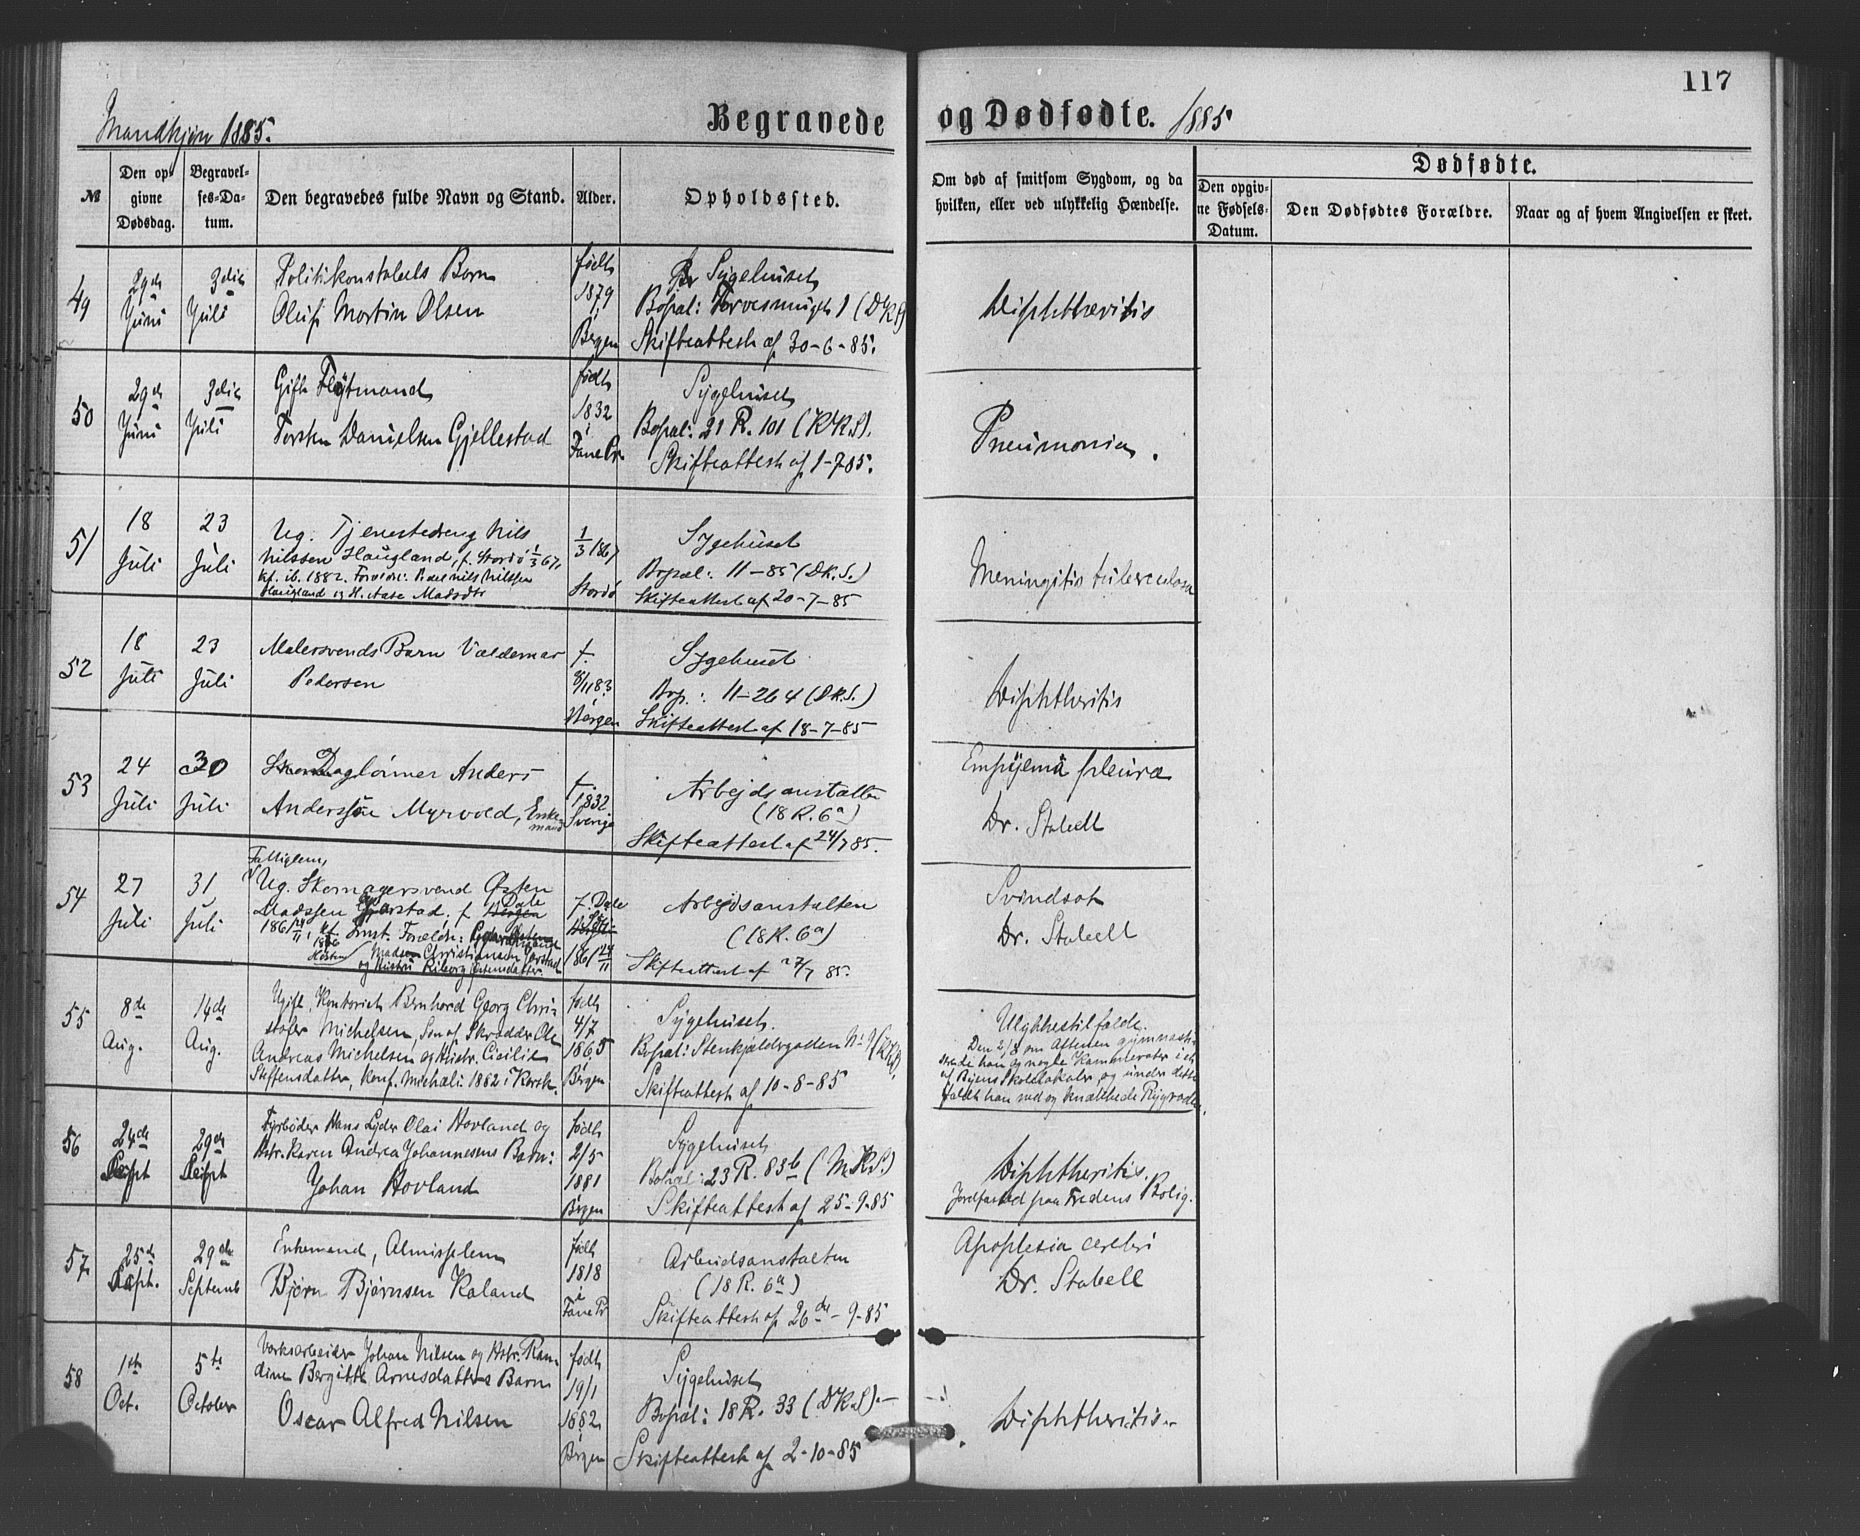 117
Mandkjøn 1885.
Begravede og Dødfødte. 1885
№
Den opgivne Dødsdag.
Begravelses-Datum.
Den begravedes fulde Navn og Stand.
Alder.
Opholdssted.
Om død af smitsom Sygdom, og da
hvilken, eller ved ulykkelig Hændelse.
Dødfødte.
Den opgivne Fødsels-Datum.
Den Dødfødtes Forældre.
Naar og af hvem Angivelsen er skeet.
49
29de Juni
3die Juli
Politikonstabels Barn
Oluf Martin Olsen
født
1879
i
Bergen
Sygehuset
Bopæl: Torvesmuget 1 (DKS)
Skifteattest af 30-6-85.
Diphtheritis
50
29de Juni
3die Juli
Gift Fløtmand
Torsten Danielsen Gjellestad
født
1832
i
Fane Pr
Sygehuset
Bopæl: 21 R. 101 (KKS).
Skifteattest af 1-7 85.
Pneumonia.
51
18 Juli
23 Juli
Ug. Tjenestedreng Nils
Nilssen Haugland, f. Stordø 1/3 67,
kf. ib. 1882. Forældre: Nils Nilssen
Haugland og H. Aase Madsdtr
1/3 1867
Stordø
Sygehuset
Bopæl: 11-85 (DK.S.)
Skifteattest af 20-7-85
Meningitis tuberculosa
52
18 Juli
23 Juli
Malersvends Barn Valdemar
Pedersen
f.
8/11 83
Bergen
Sygehuset
Bop.: 11-264 (DK.S.)
Skifteattest af 18-7-85
Diphtheritis
53
24 Juli
30 Juli
Dagleiner Anders
Anderssøn Myrvold, Enkemand
f.
1832
Sverige
Arbejdsanstalten
(18 R. 6a)
Skifteattest af 24/7 85.
Empyema pleura
Dr. Stabell
54
27 Juli
31 Juli
Fattiglem,
Ug. Skomagersvend Østen
Madssen Gjerstad, f. Dale
1861 24/11, kf. 1876 Høsten
Forældre:
Mads Christiansen
og Hustru
f. Dale
1861 24/11
Arbejdsanstalten
(18 R. 6a)
Skifteattest af 27/7 85.
Svindsot
Dr. Stabell
55
8de Aug.
14de Aug.
Ugift, Kontorist Bernhard Georg Chri-
stofer Michelsen, Søn af Skrædder Ole
Andreas Michelsen og Hustr. Cicilie
Steffensdatter, konf. Michaeli 1882 i Korsk.
født
4/7
1865
i
Bergen
Sygehuset.
Bopæl: Stenkjældergaden N: 9 (KKS).
Skifteattest af 10-8-85
Ulykkestilfælde.
Den 2/8 om Aftenen gymnasti-
serede han og nogle Kammerater i et
af Byens Skolelokaler, og under dette
faldt han ned og knækkede Rygraden.
56
24de Sept
29de Sept
Fyrbøder Hans Lyder Olai Hovland og
Hstr. Karen Andrea Johannesens Barn:
Johan Hovland
født
2/5
1881
i Bergen
Sygehuset
Bopæl: 23 R. 83b (M.K.S.)
Skifteattest af 25-9-85
Diphtheritis.
Jordfæsted paa Fredens Bolig.
57
25de Sept.
29de Septemb
Enkemand, Almisselem
Bjørn Bjørnsen Kaland
født
1818
i
Fane Pr
Arbeidsanstalten
(18 R. 6a)
Skifteattest af 26de-9-85
Apoplexia cerebri
Dr. Stabell
58
1ste Oct.
5te October
Værksarbeider Johan Nilsen og Hstr. Ran-
dine Bergitte Arnesdatters Barn
Oscar Alfred Nilsen
født
19/1
1882
i
Bergen
Sygehuset
Bopæl: 18 R. 33 (DK.S).-
Skifteattest af 2-10-85
Diphtheritis